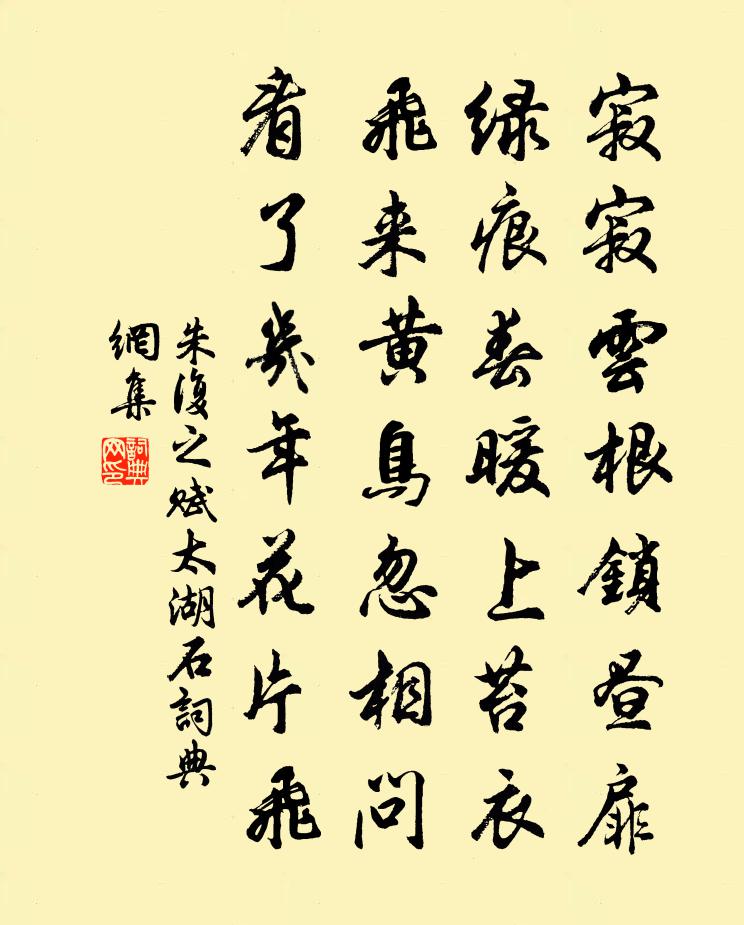 寂寂雲根鎖昼扉
緑痕春暖上苔衣
飛来黄鳥忽相問
看了幾年花片飛
朱復之賦太湖石詞典
網集
詞典网印